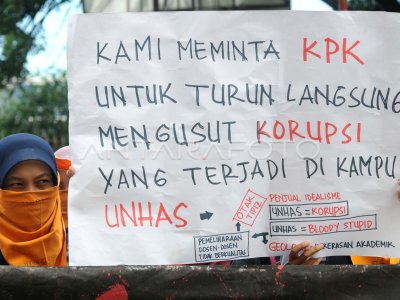 KAMI MEMINTA KPK
UNTUK TURUN LANGSUNG
MENGUSUT KORUPSI
YANG TERJADI DI KAMPU
UNHAS
OTAK TIPIZ
PENJUAL IDEALISME
UNHAS = KORUPSI
UNHAS = BLOODY STUPID
PEMELIHARAAN
DOSEN-DOSEN
TIDAK BERKUALITAS
KERASAN AKADEMIK
ANTARAFOTO